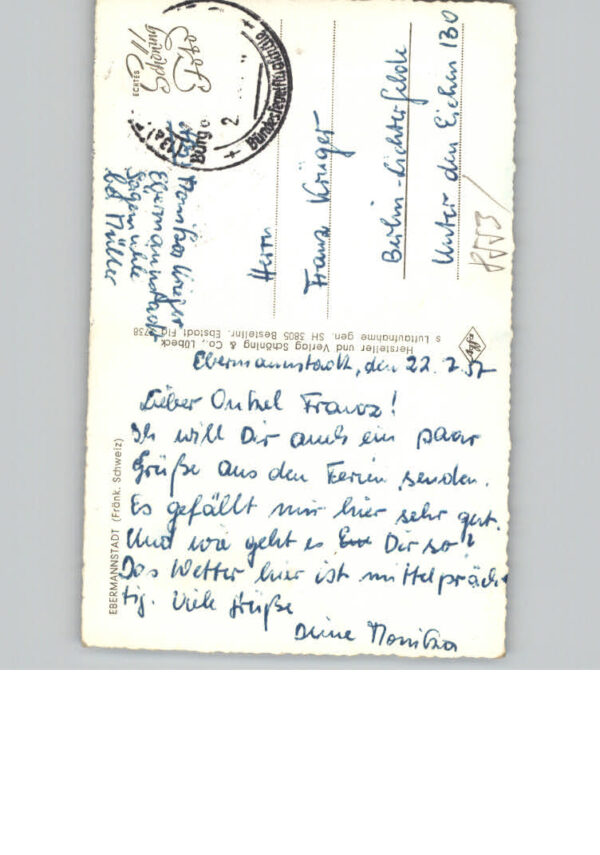 Ebermannstadt, den 22. 7. 57
Lieber Onkel Franz!
Ich will Dir auch ein paar
Grüße aus den Ferien senden.
Es gefällt mir hier sehr gut.
Und wie geht es Dir so?
Das Wetter hier ist mittelpräch-
tig. Viele Grüße
Deine Monika
EBERMANNSTADT (Fränk. Schweiz)
Hersteller und Verlag Schöning & Co., Lübeck
s Luftaufnahme gen. SH 3805 Bestellnr. Ebstadt Flg 738
Herrn
Franz Krüger
Berlin-Lichterfelde
Unter den Eichen 130
Monika Krüger
Ebermannstadt
Sägemühle
bei Müller
ECHTES
Schöning
Foto
(13a)
Burg
2